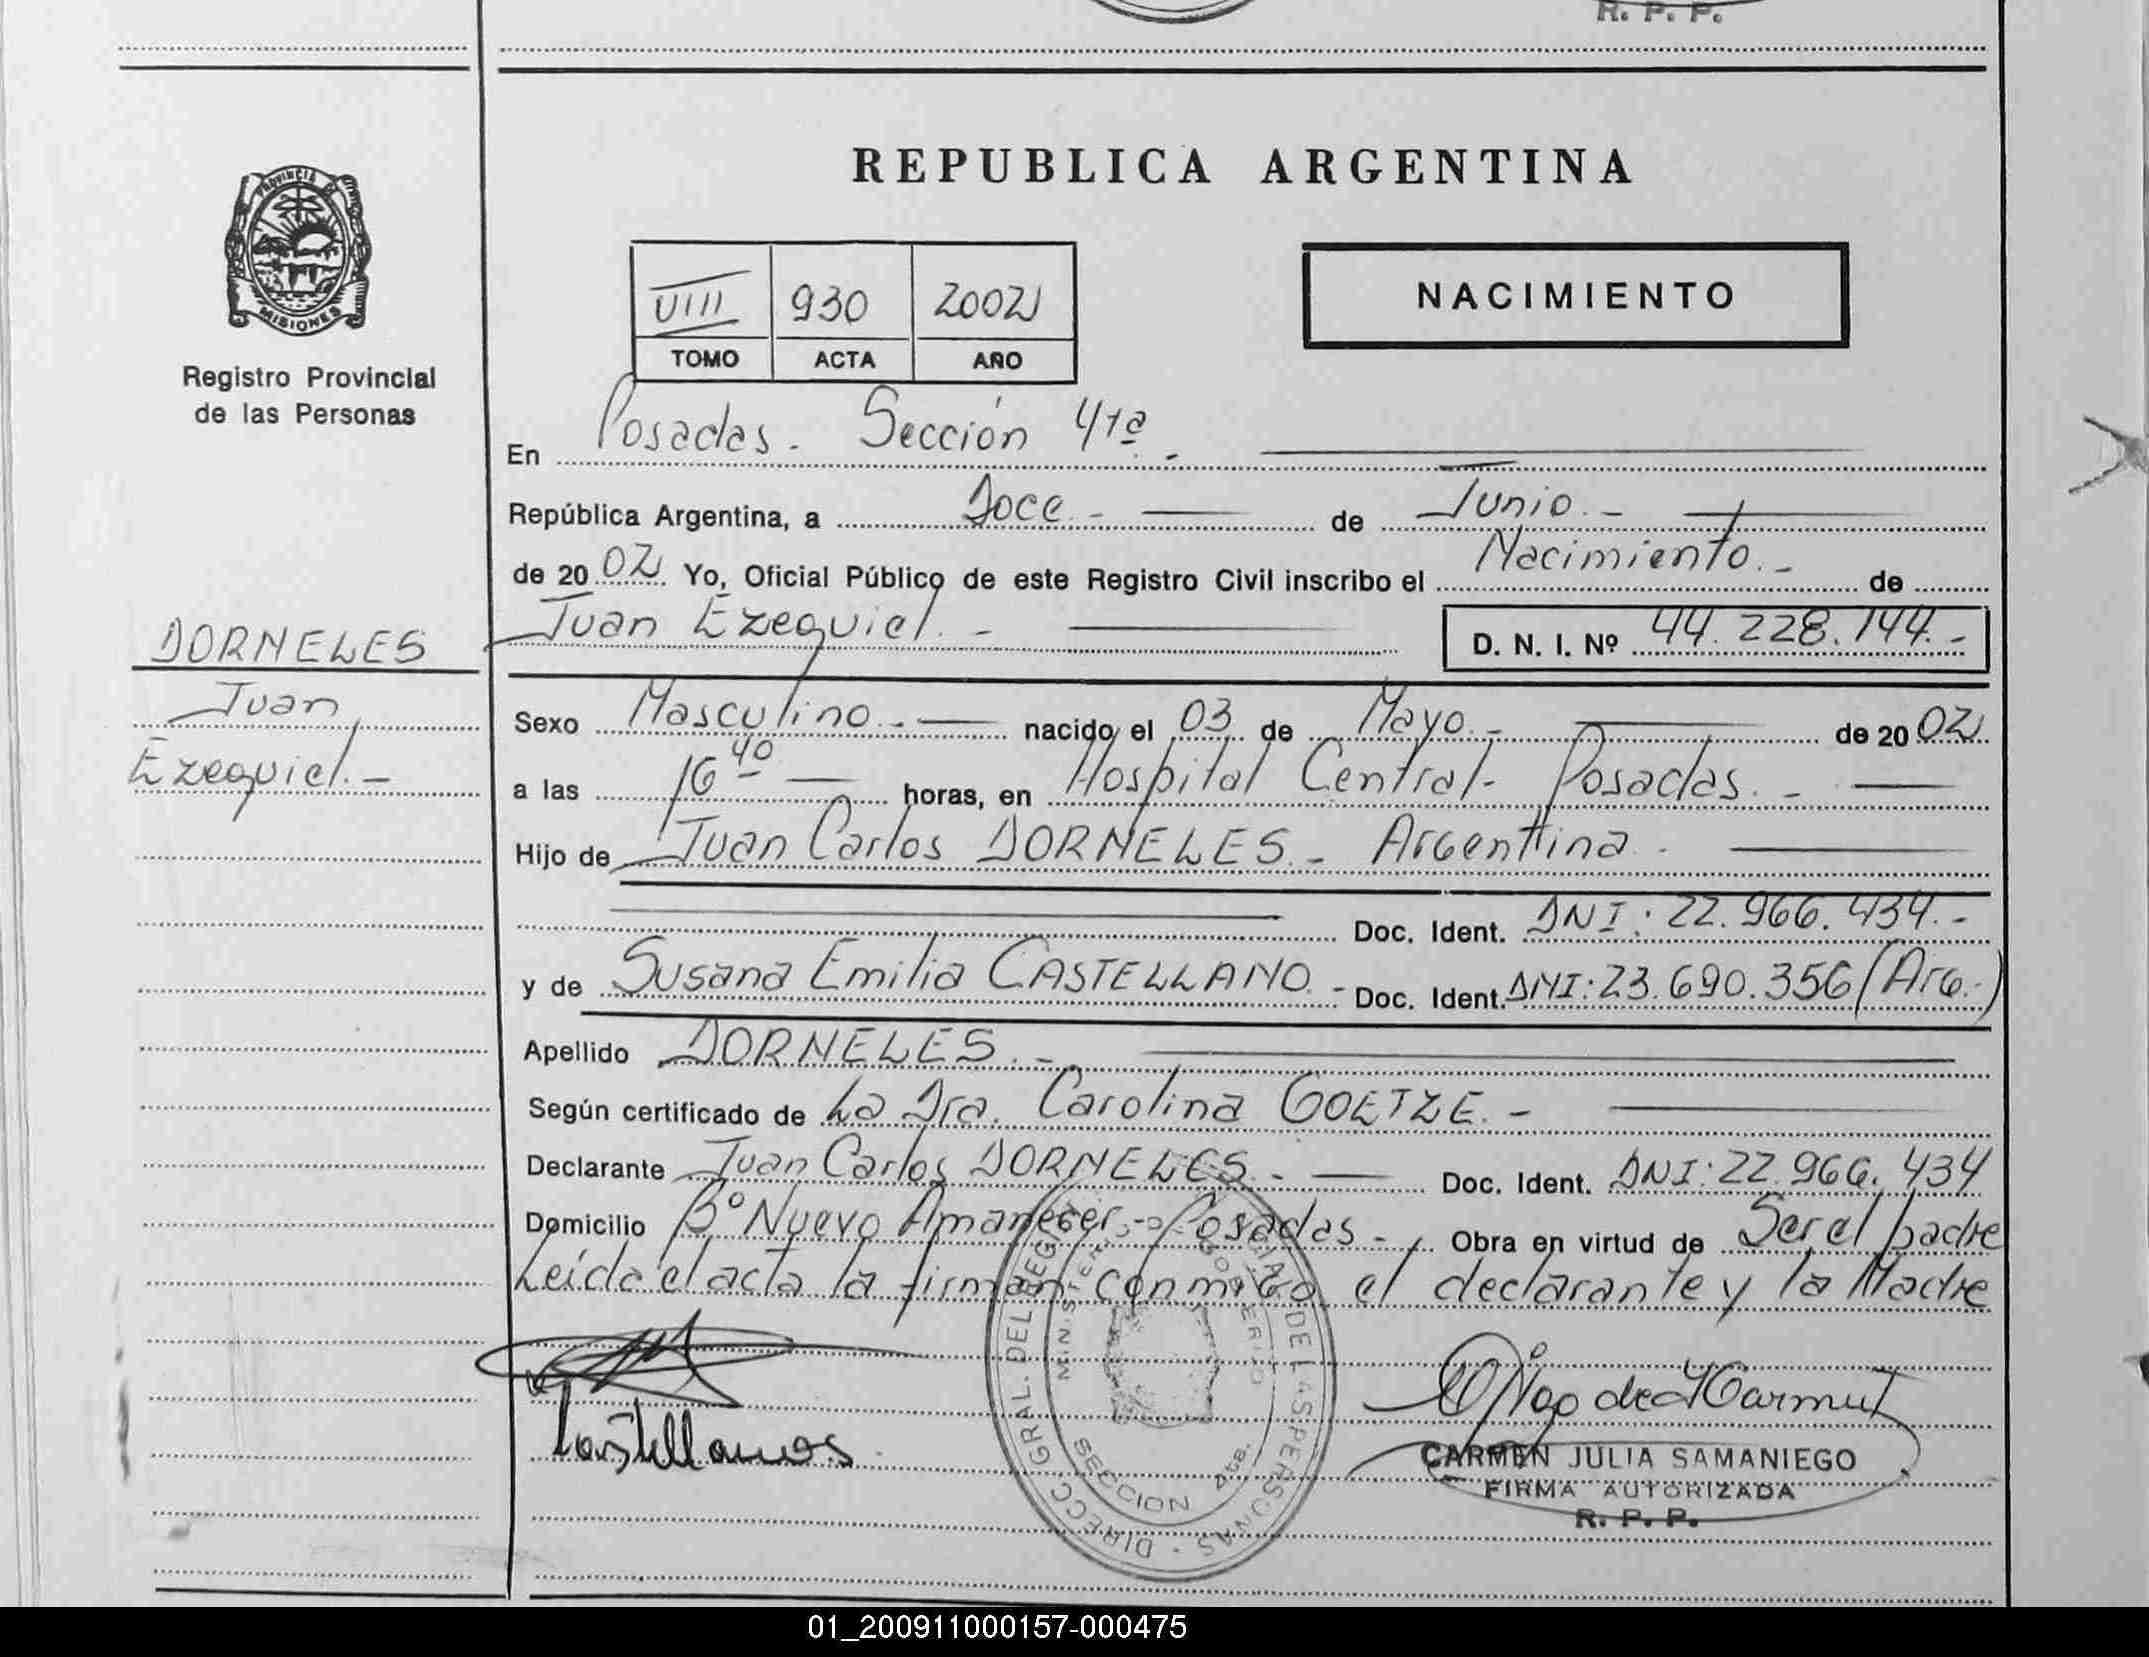 R. P. P.
PROVINCIA DE
MISIONES
Registro Provincial
de las Personas
DORNELES
Juan
Ezequiel.-
REPUBLICA ARGENTINA
VIII 930 2002
TOMO ACTA AÑO
NACIMIENTO
En Posadas. Sección 4ta.-
República Argentina, a Doce.- de Junio.-
de 2002 Yo, Oficial Público de este Registro Civil inscribo el Nacimiento.- de
Juan Ezequiel.- D. N. I. Nº 44.228.144.-
Sexo Masculino.- nacido el 03 de Mayo.- de 2002
a las 16 40 horas, en Hospital Central- Posadas.-
Hijo de Juan Carlos DORNELES.- Argentina.
Doc. Ident. DNI: 22.966.434.-
y de Susana Emilia CASTELLANO.- Doc. Ident. DNI: 23.690.356 (Arg.)
Apellido DORNELES.-
Según certificado de La Dra. Carolina GOETZE.-
Declarante Juan Carlos DORNELES.- Doc. Ident. DNI: 22.966.434
Domicilio Bº Nuevo Amanecer.- Posadas.- Obra en virtud de Ser el padre
Leída el acta la firman conmigo el declarante y la Madre
Castellanos
DIRECC. GRAL. DEL REGISTRO DE LAS PERSONAS
MINISTERIO GOBIERNO
SECCION 4ta.
CARMEN JULIA SAMANIEGO
FIRMA AUTORIZADA
R. P. P.
01_200911000157-000475